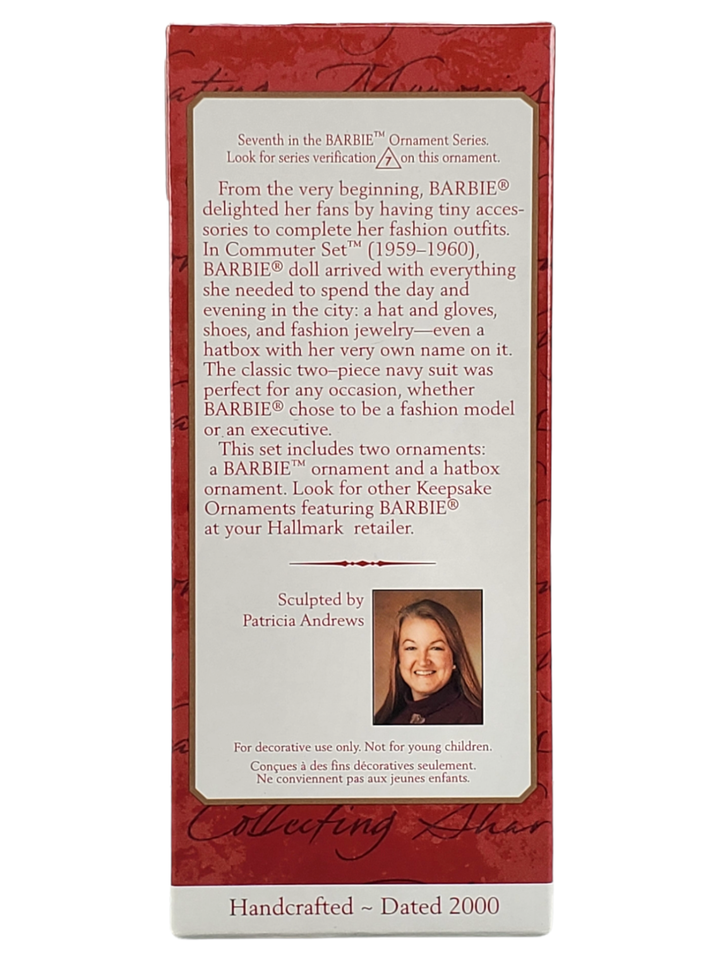 Seventh in the BARBIE™ Ornament Series.
Look for series verification 7 on this ornament.
From the very beginning, BARBIE®
delighted her fans by having tiny acces-
sories to complete her fashion outfits.
In Commuter Set™ (1959–1960),
BARBIE® doll arrived with everything
she needed to spend the day and
evening in the city: a hat and gloves,
shoes, and fashion jewelry—even a
hatbox with her very own name on it.
The classic two–piece navy suit was
perfect for any occasion, whether
BARBIE® chose to be a fashion model
or an executive.
This set includes two ornaments:
a BARBIE™ ornament and a hatbox
ornament. Look for other Keepsake
Ornaments featuring BARBIE®
at your Hallmark retailer.
Sculpted by
Patricia Andrews
For decorative use only. Not for young children.
Conçues à des fins décoratives seulement.
Ne conviennent pas aux jeunes enfants.
Collecting Shar
Handcrafted ~ Dated 2000